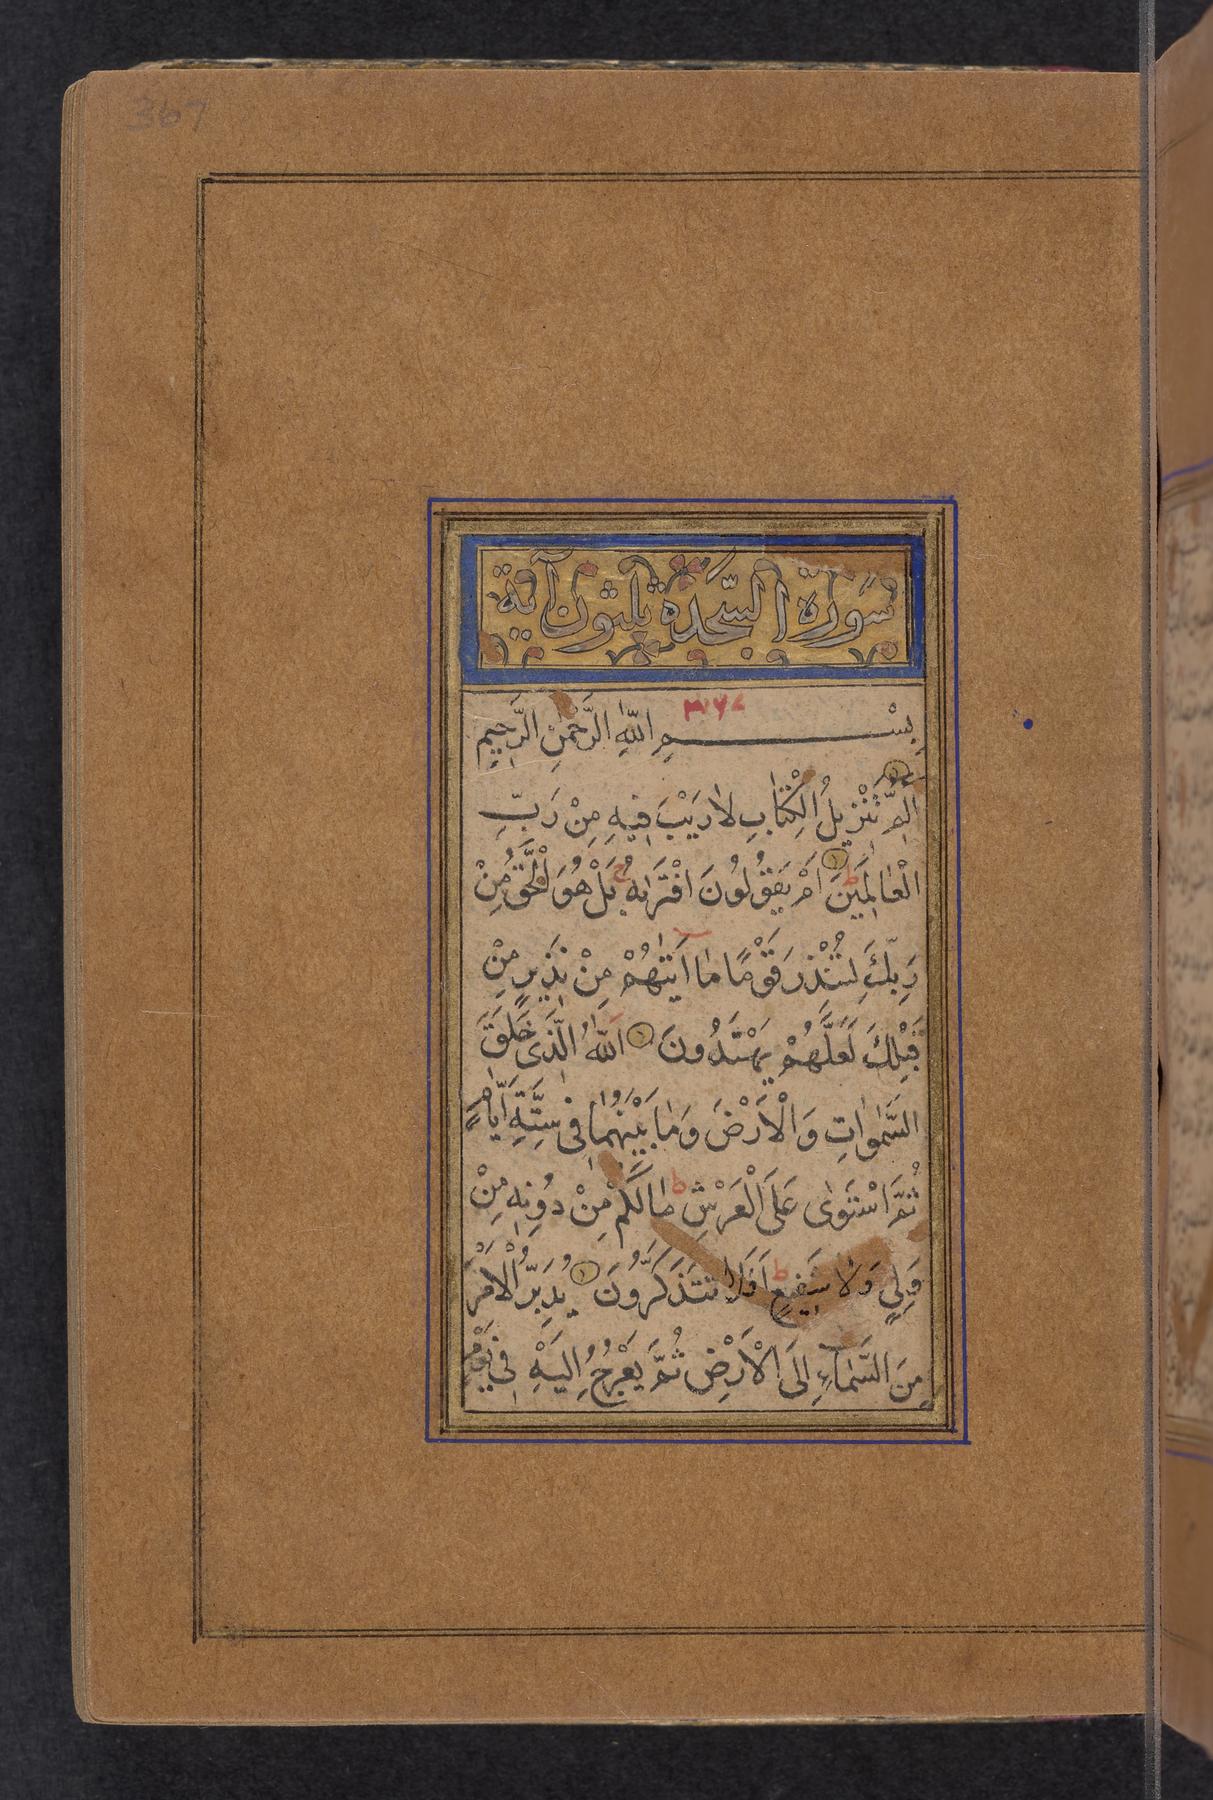 367
سورة السجدة ثلثون آية
٣٦٧
بِسْمِ اللّٰهِ الرَّحْمٰنِ الرَّحِيمِ
الٓمّٓ تَنْزِيلُ الْكِتَابِ لَا رَيْبَ فِيهِ مِنْ رَبِّ
الْعَالَمِينَ ط اَمْ يَقُولُونَ افْتَرٰيهُ ج بَلْ هُوَ الْحَقُّ مِنْ
رَبِّكَ لِتُنْذِرَ قَوْمًا مَا اَتٰيهُمْ مِنْ نَذِيرٍ مِنْ
قَبْلِكَ لَعَلَّهُمْ يَهْتَدُونَ اَللّٰهُ الَّذِى خَلَقَ
السَّمٰوَاتِ وَالْاَرْضَ وَمَا بَيْنَهُمَا فِى سِتَّةِ اَيَّامٍ
ثُمَّ اسْتَوٰى عَلَى الْعَرْشِ ط مَا لَكُمْ مِنْ دُونِهِ مِنْ
وَلِىٍّ وَلَا شَفِيعٍ ط اَفَلَا تَتَذَكَّرُونَ يُدَبِّرُ الْاَمْرَ
مِنَ السَّمَاءِ اِلَى الْاَرْضِ ثُمَّ يَعْرُجُ اِلَيْهِ فِى يَوْمٍ